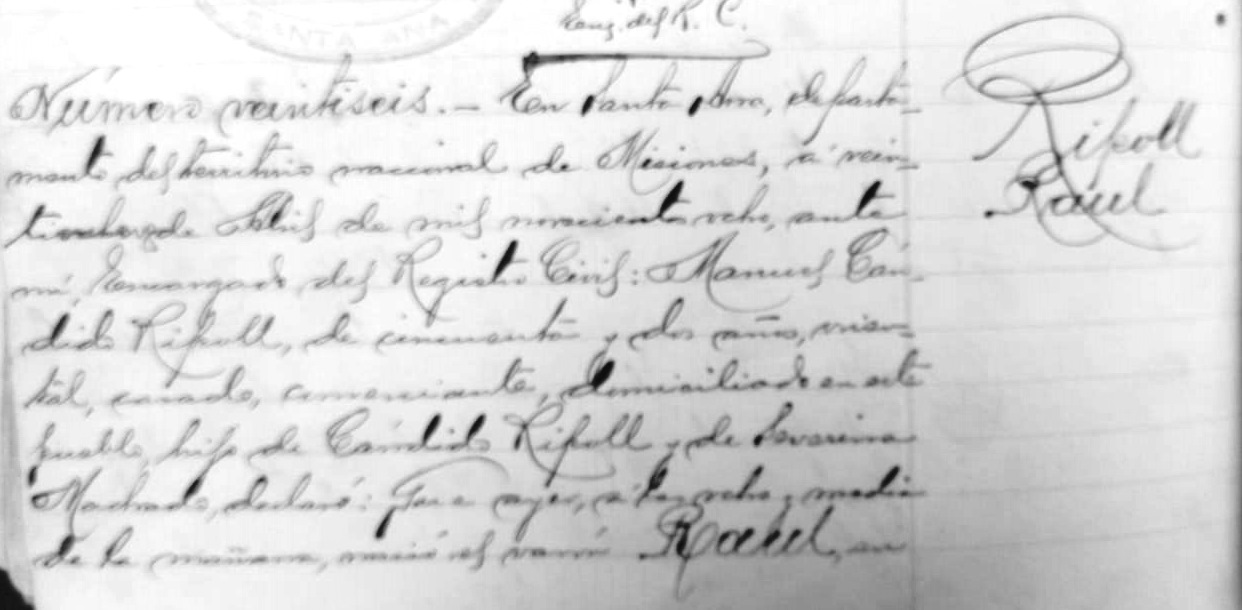 SANTA ANA
Enc. del R. C.
Número veintiseis. — En Santa Ana, departa-
mento del territorio nacional de Misiones, á vein-
de Abril de mil novecientos ocho, ante
mí, Encargado del Registro Civil: Manuel Cán-
dido Ripoll, de cincuenta y dos años, orien-
tal, casado, comerciante, domiciliado en este
pueblo, hijo de Cándido Ripoll y de Severina
Machado, declaró: Que ayer, á las ocho y media
de la mañana, nació el varón Raúl, en
Ripoll
Raúl